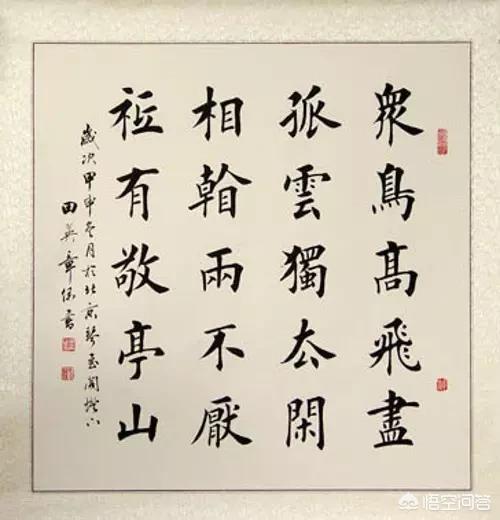 衆鳥高飛盡
孤雲獨厺閑
相看兩不厭
祗有敬亭山
歲次甲申冬月於北京閣燈下
田英章書
悟空问答